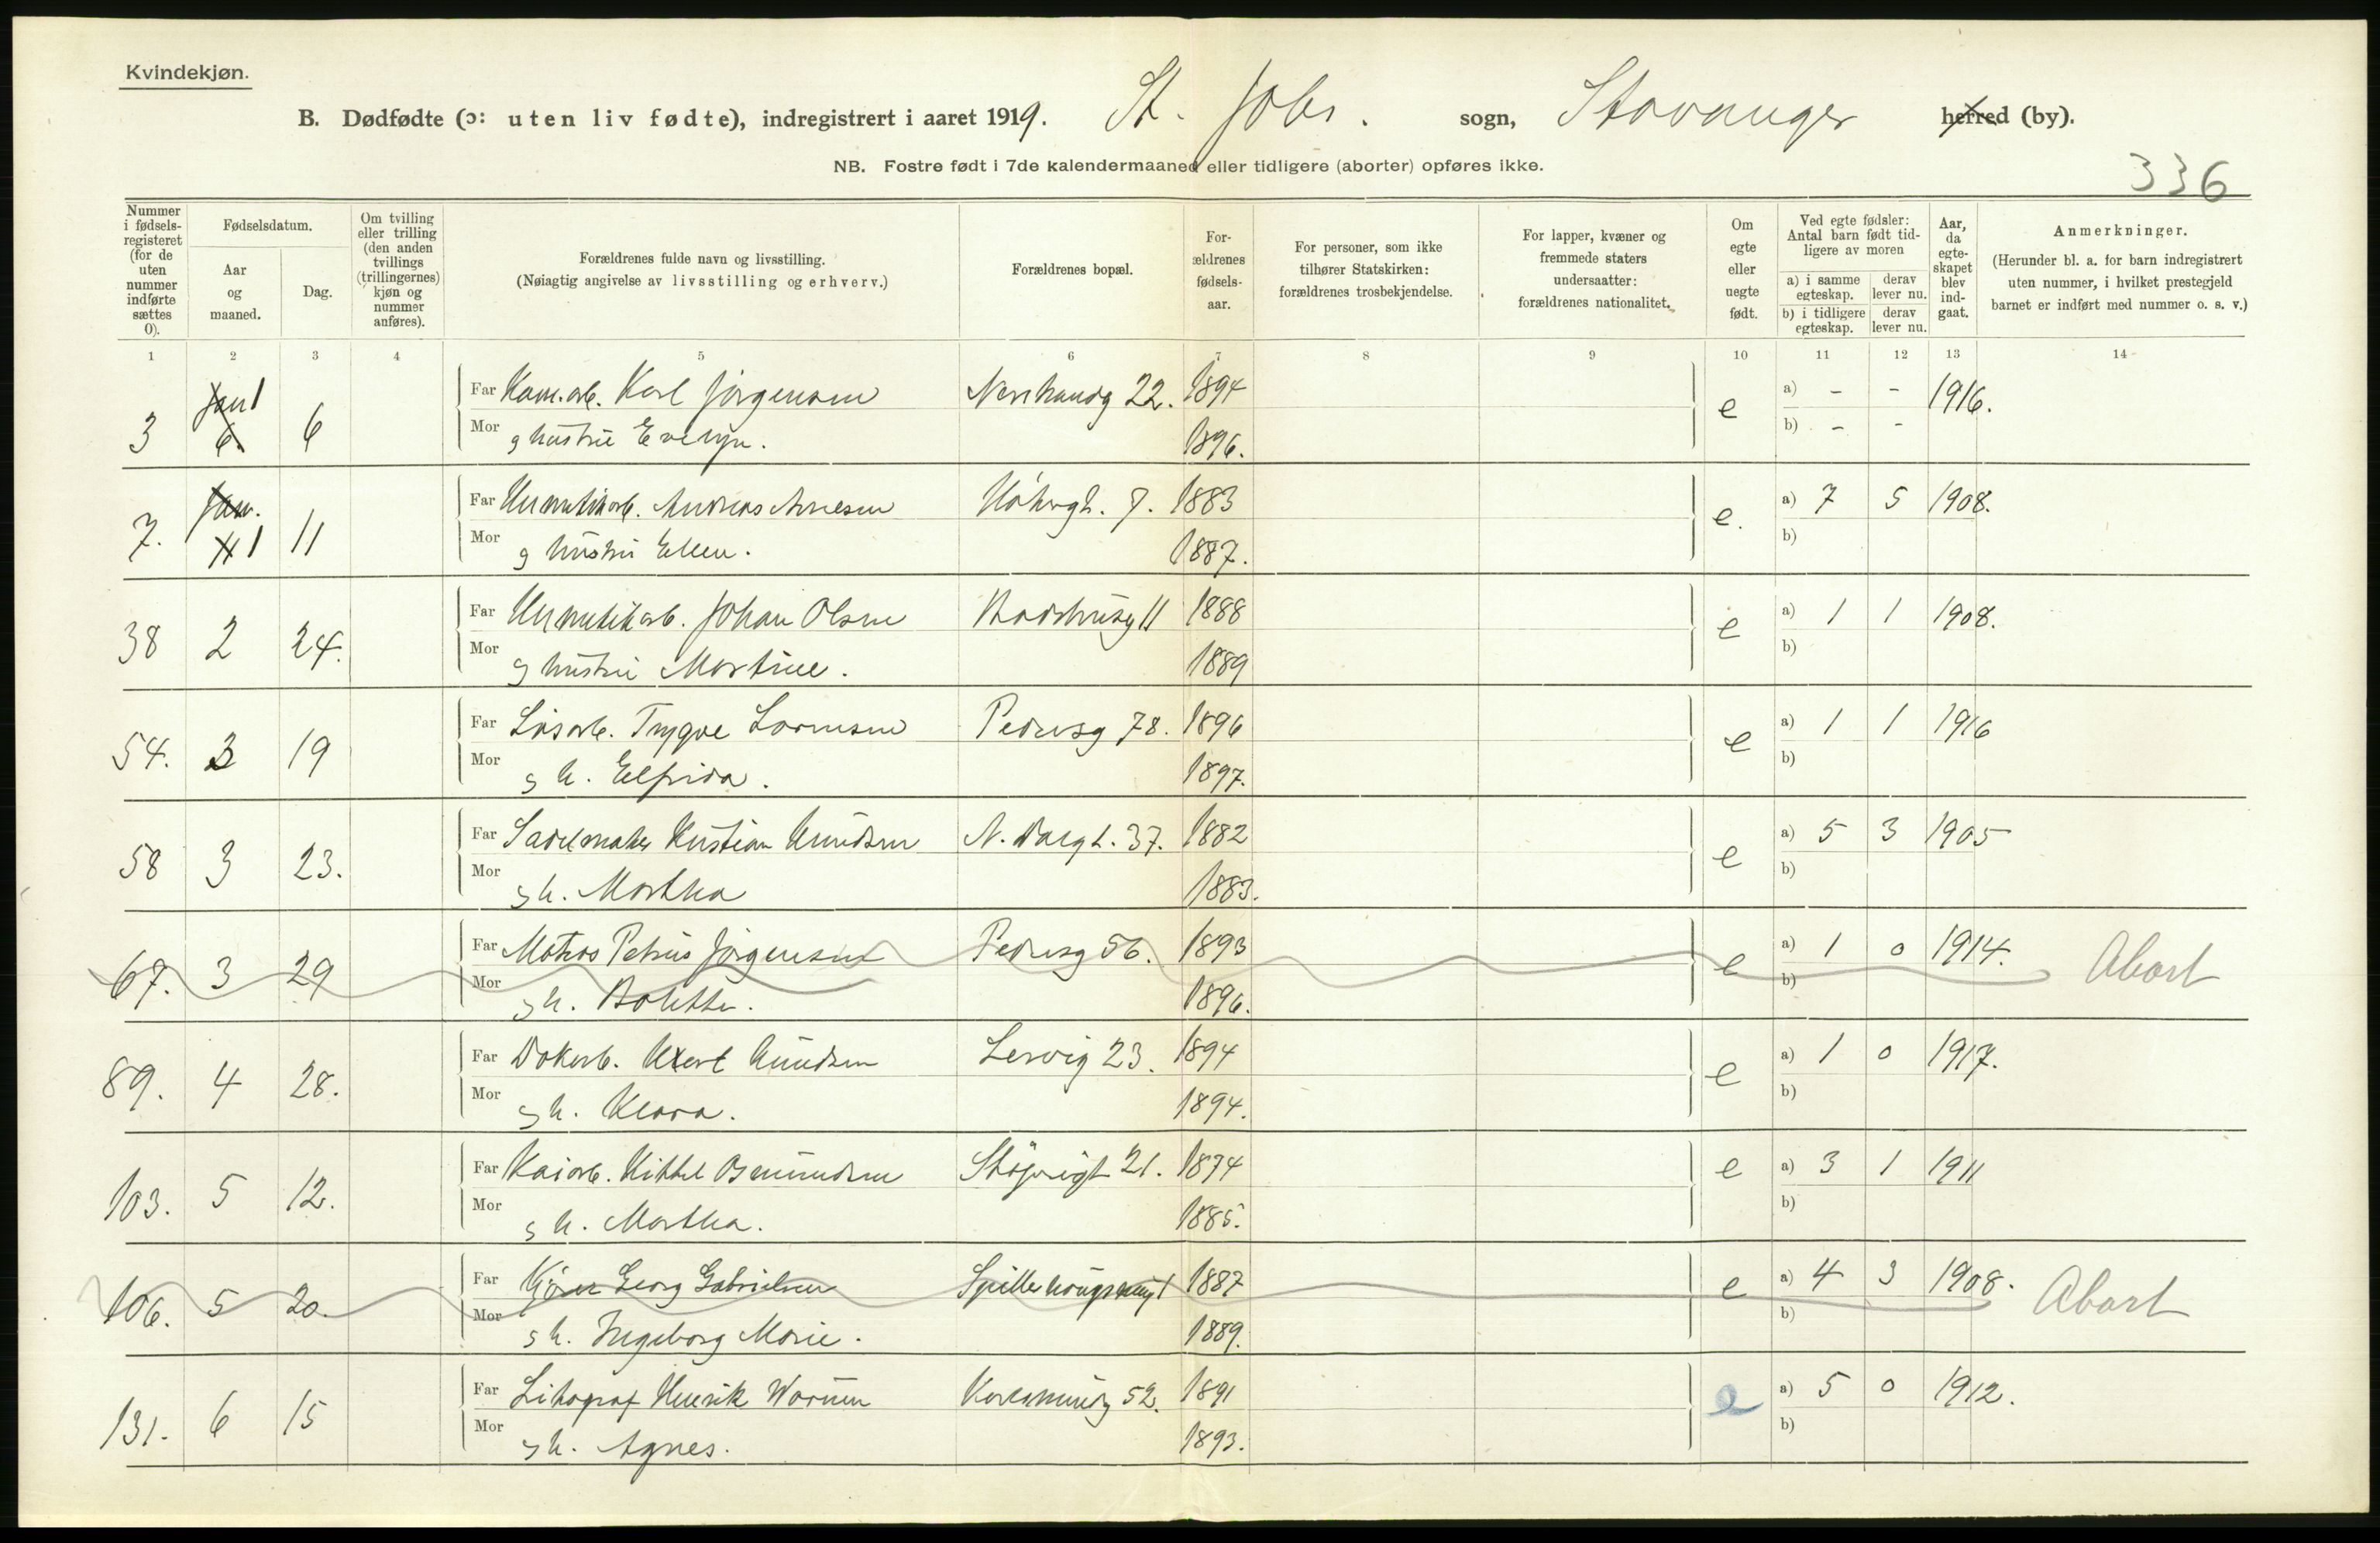 Kvindekjøn.
B. Dødfødte (ɔ: uten liv fødte), indregistrert i aaret 1919. St. Johs. sogn, Stavanger herred (by).
NB. Fostre født i 7de kalendermaaned eller tidligere (aborter) opføres ikke.
336
Nummer i fødsels-registeret (for de uten nummer indførte sættes 0).
Fødselsdatum.
Aar og maaned.
Dag.
Om tvilling eller trilling (den anden tvillings (trillingernes) kjøn og nummer anføres).
Forældrenes fulde navn og livsstilling.
(Nøiagtig angivelse av livsstilling og erhverv.)
Forældrenes bopæl.
For-ældrenes fødsels-aar.
For personer, som ikke tilhører Statskirken: forældrenes trosbekjendelse.
For lapper, kvæner og fremmede staters undersaatter: forældrenes nationalitet.
Om egte eller uegte født.
Ved egte fødsler: Antal barn født tid-ligere av moren
a) i samme egteskap. derav lever nu.
b) i tidligere egteskap. derav lever nu.
Aar, da egte-skapet blev ind-gaat.
Anmerkninger.
(Herunder bl. a. for barn indregistrert uten nummer, i hvilket prestegjeld barnet er indført med nummer o. s. v.)
1 2 3 4 5 6 7 8 9 10 11 12 13 14
3 Jan 1 6 6 Far Karl Jørgensen 22. 1894 e a) - - 1916.
Mor g hustru Evelyn. 1896. b) - -
7. Jan. 1 11 Far Hermetikarb. Andreas Arnesen 7. 1883 e. a) 7 5 1908.
Mor g hustru Ellen. 1887. b)
38 2 24. Far Hermetikarb. Johan Olsen 11 1888 e a) 1 1 1908.
Mor g hustru Martine. 1889 b)
54. 3 19 Far Løsarb. Trygve Pedersg 78. 1896 e a) 1 1 1916
Mor g h. Elfrida. 1897. b)
58 3 23. Far Sadelmaker Kristian Knudsen N. Dalgt. 37. 1882 e a) 5 3 1905
Mor g h. Martha 1883. b)
67. 3 29 Far Matros Petrus Jørgensen Pedersg 56. 1893 e a) 1 0 1914. Abort
Mor g h. Bolette. 1896. b)
89. 4 28. Far Knudsen Lervig 23. 1894 e a) 1 0 1917.
Mor g h. Klara. 1894. b)
103. 5 12. Far Kaiarb. Kittel Osmundsen 21. 1874 e a) 3 1 1911
Mor g h. Martha. 1885. b)
106. 5 20. Far Georg Gabrielsen 1887 e a) 4 3 1908. Abort
Mor g h. Ingeborg Marie. 1889. b)
131. 6 15 Far Litograf Henrik 52. 1891 e a) 5 0 1912.
Mor g h. Agnes. 1893. b)